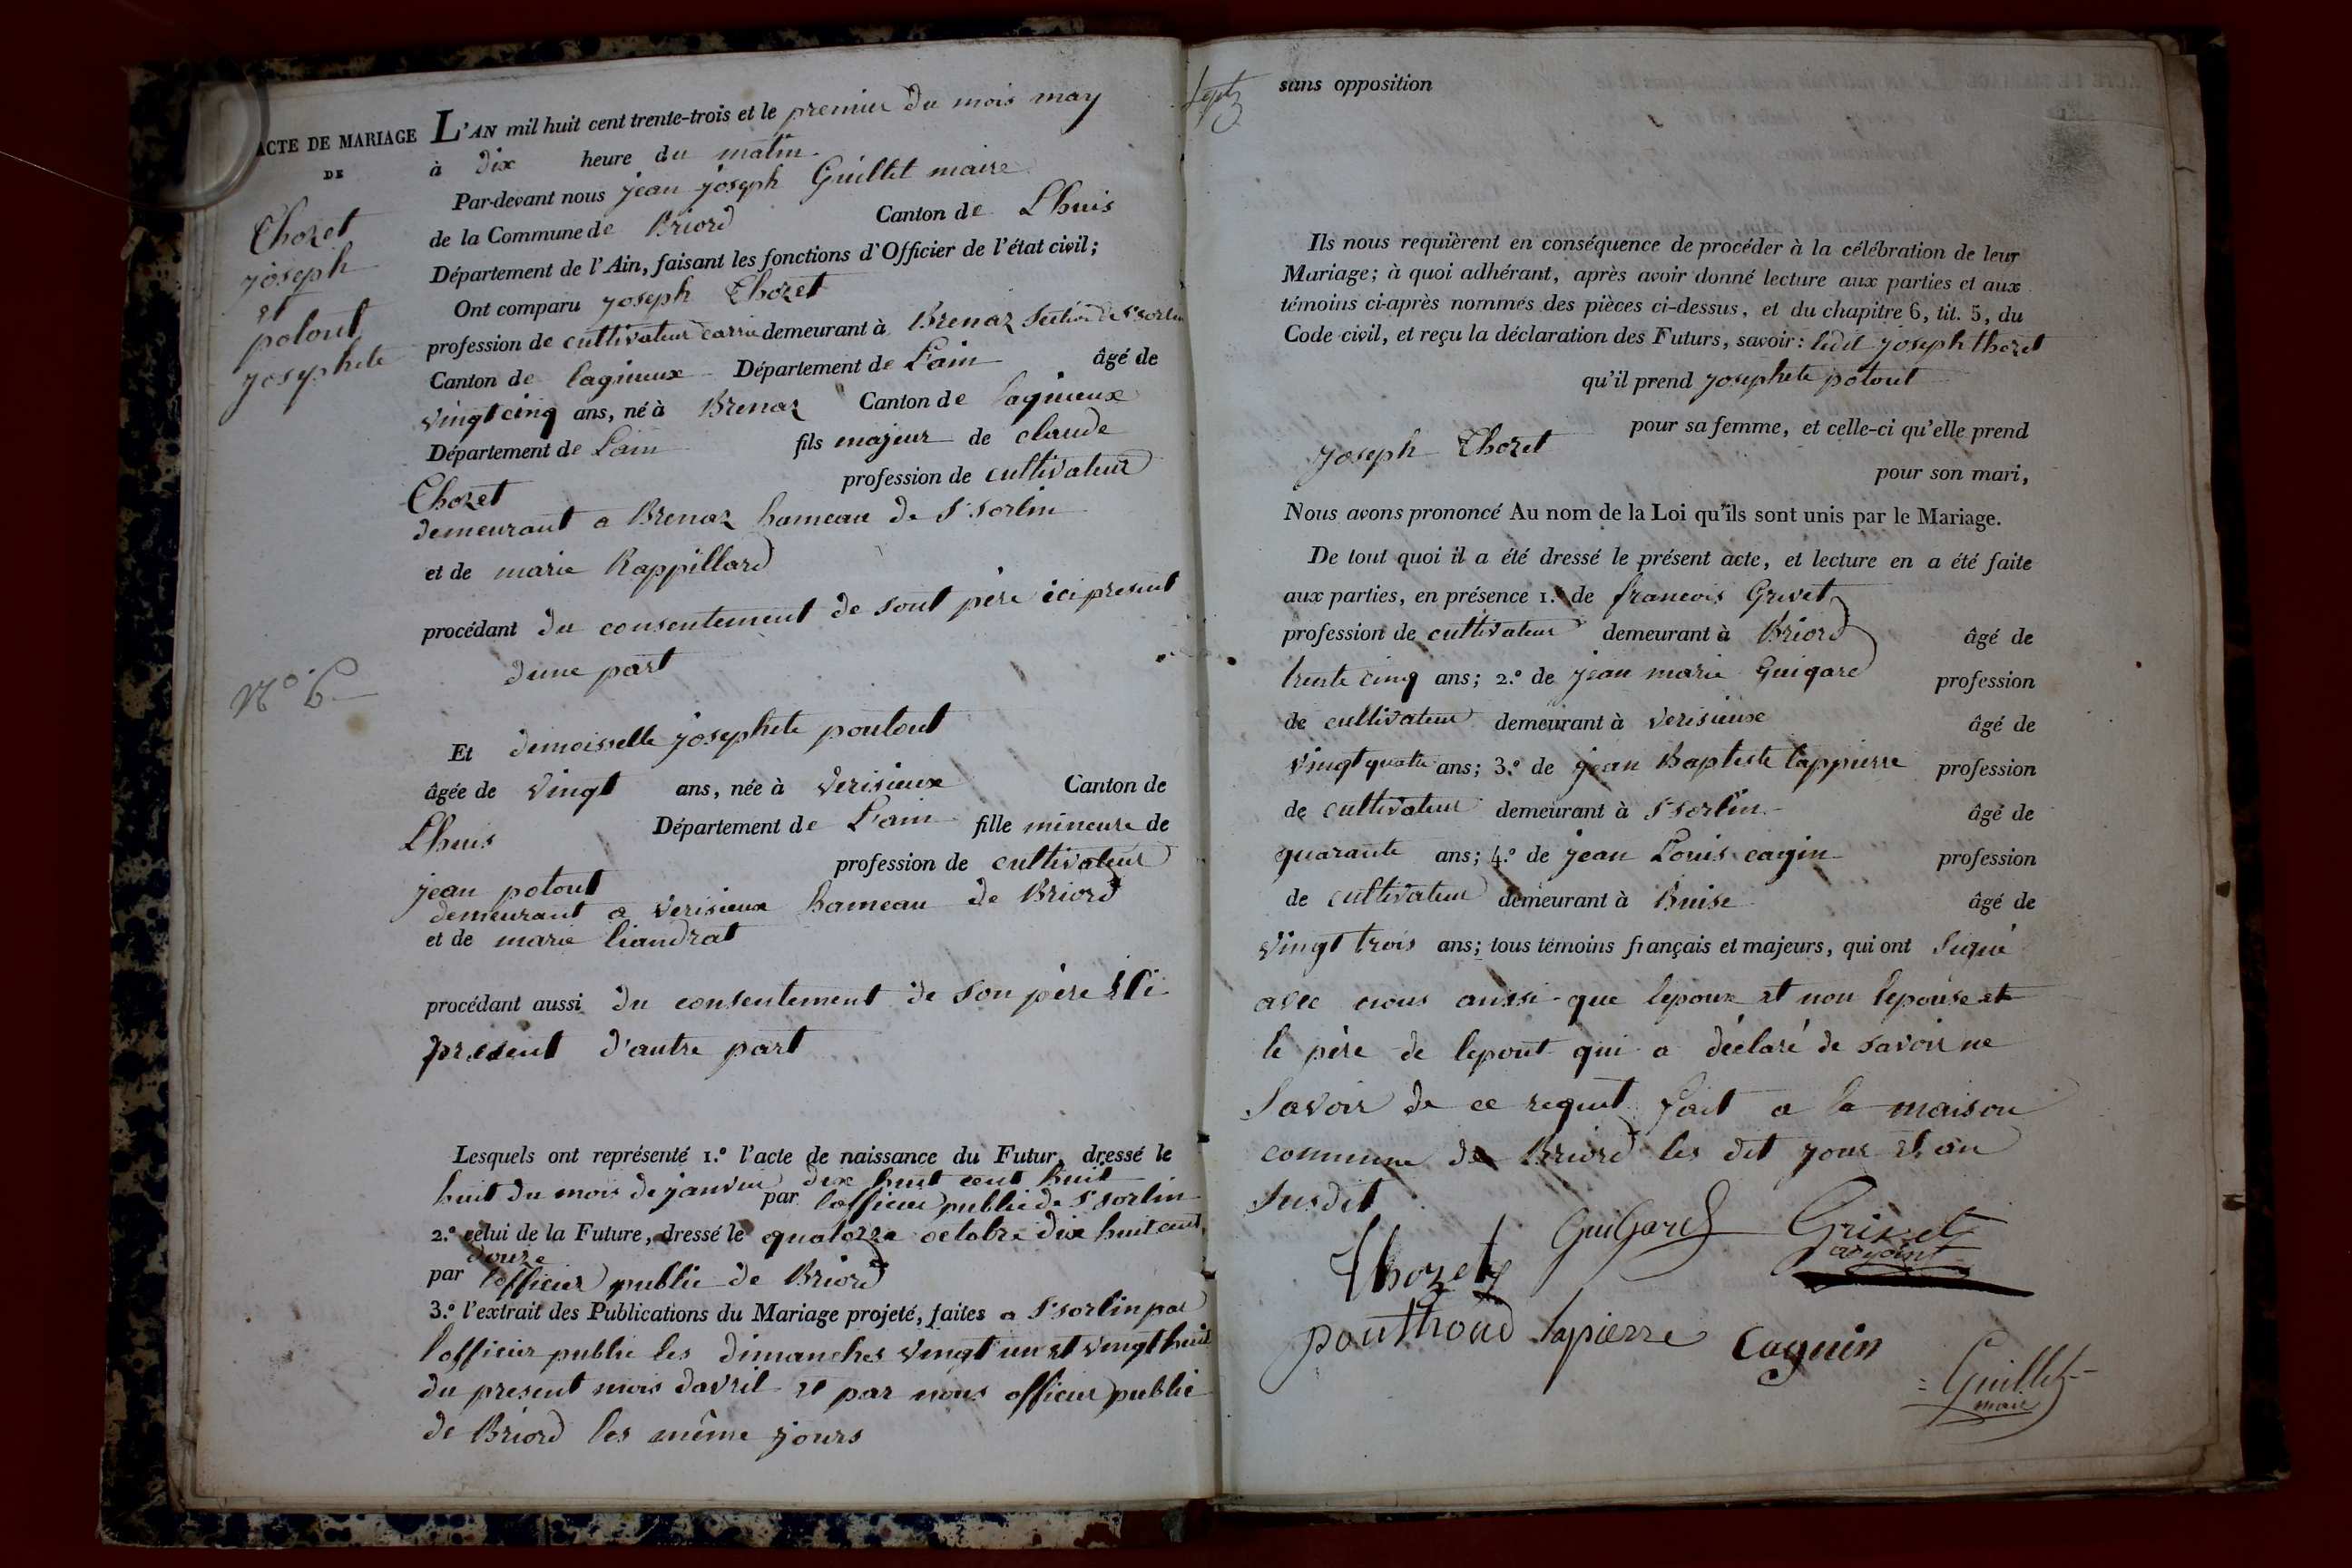 ACTE DE MARIAGE
DE
Thozet
joseph
et
potout
josephete
N° 6
L'AN mil huit cent trente-trois et le premier du mois may
à dix heure du matin
Par-devant nous jean joseph Guillet maire
de la Commune de Briord Canton de Lhuis
Département de l'Ain, faisant les fonctions d'Officier de l'état civil;
Ont comparu joseph Thozet
profession de cultivateur demeurant à Brenaz Section de St sorlin
Canton de lagnieux Département de L'ain âgé de
vingt cinq ans, né à Brenaz Canton de lagnieux
Département de Lain fils majeur de claude
Thozet profession de cultivateur
demeurant a Brenaz hameau de St sorlin
et de marie Rappillard
procédant du consentement de sont père ici present
dune part
Et demoisselle josephete poutout
âgée de vingt ans, née à verisieux Canton de
Lhuis Département de L'ain fille mineure de
jean potout profession de cultivateur
demeurant a verisieux hameau de Briord
et de marie liandrat
procédant aussi du consentement de son père ici
present d'autre part
Lesquels ont représenté 1.º l'acte de naissance du Futur, dressé le
huit du mois de janvier dix huit cent huit
par l'officier public de St sorlin
2.º celui de la Future, dressé le quatorze octobre dix huit cent
douze
par l'officier public de Briord
3.º l'extrait des Publications du Mariage projeté, faites a St sorlin par
l'officier public les dimanches vingt un et vingt huit
du present mois davril et par nous officier public
de Briord les même jours
sans opposition
Ils nous requièrent en conséquence de procéder à la célébration de leur
Mariage; à quoi adhérant, après avoir donné lecture aux parties et aux
témoins ci-après nommés des pièces ci-dessus, et du chapitre 6, tit. 5, du
Code civil, et reçu la déclaration des Futurs, savoir: ledit joseph thozet
qu'il prend josephete potout
pour sa femme, et celle-ci qu'elle prend
joseph Thozet
pour son mari,
Nous avons prononcé Au nom de la Loi qu'ils sont unis par le Mariage.
De tout quoi il a été dressé le présent acte, et lecture en a été faite
aux parties, en présence 1.º de francois Grivet
profession de cultivateur demeurant à Briord âgé de
trente cinq ans; 2.º de jean marie Guigard profession
de cultivateur demeurant à verisieux âgé de
vingt quatre ans; 3.º de jean Baptiste lappierre profession
de cultivateur demeurant à St sorlin âgé de
quarante ans; 4.º de jean Louis cagin profession
de cultivateur demeurant à Buise âgé de
vingt trois ans; tous témoins français et majeurs, qui ont signé
avec nous aussi que lepoux et non lepouse et
le père de lepout qui a déclaré de savoir ne
savoir de ce requit fait a la maison
commune de Briord les dit jour et an
susdit
Thozet Guigard Grivet
adjoint
pouthoud lapierre Caguin
Guillet
maire